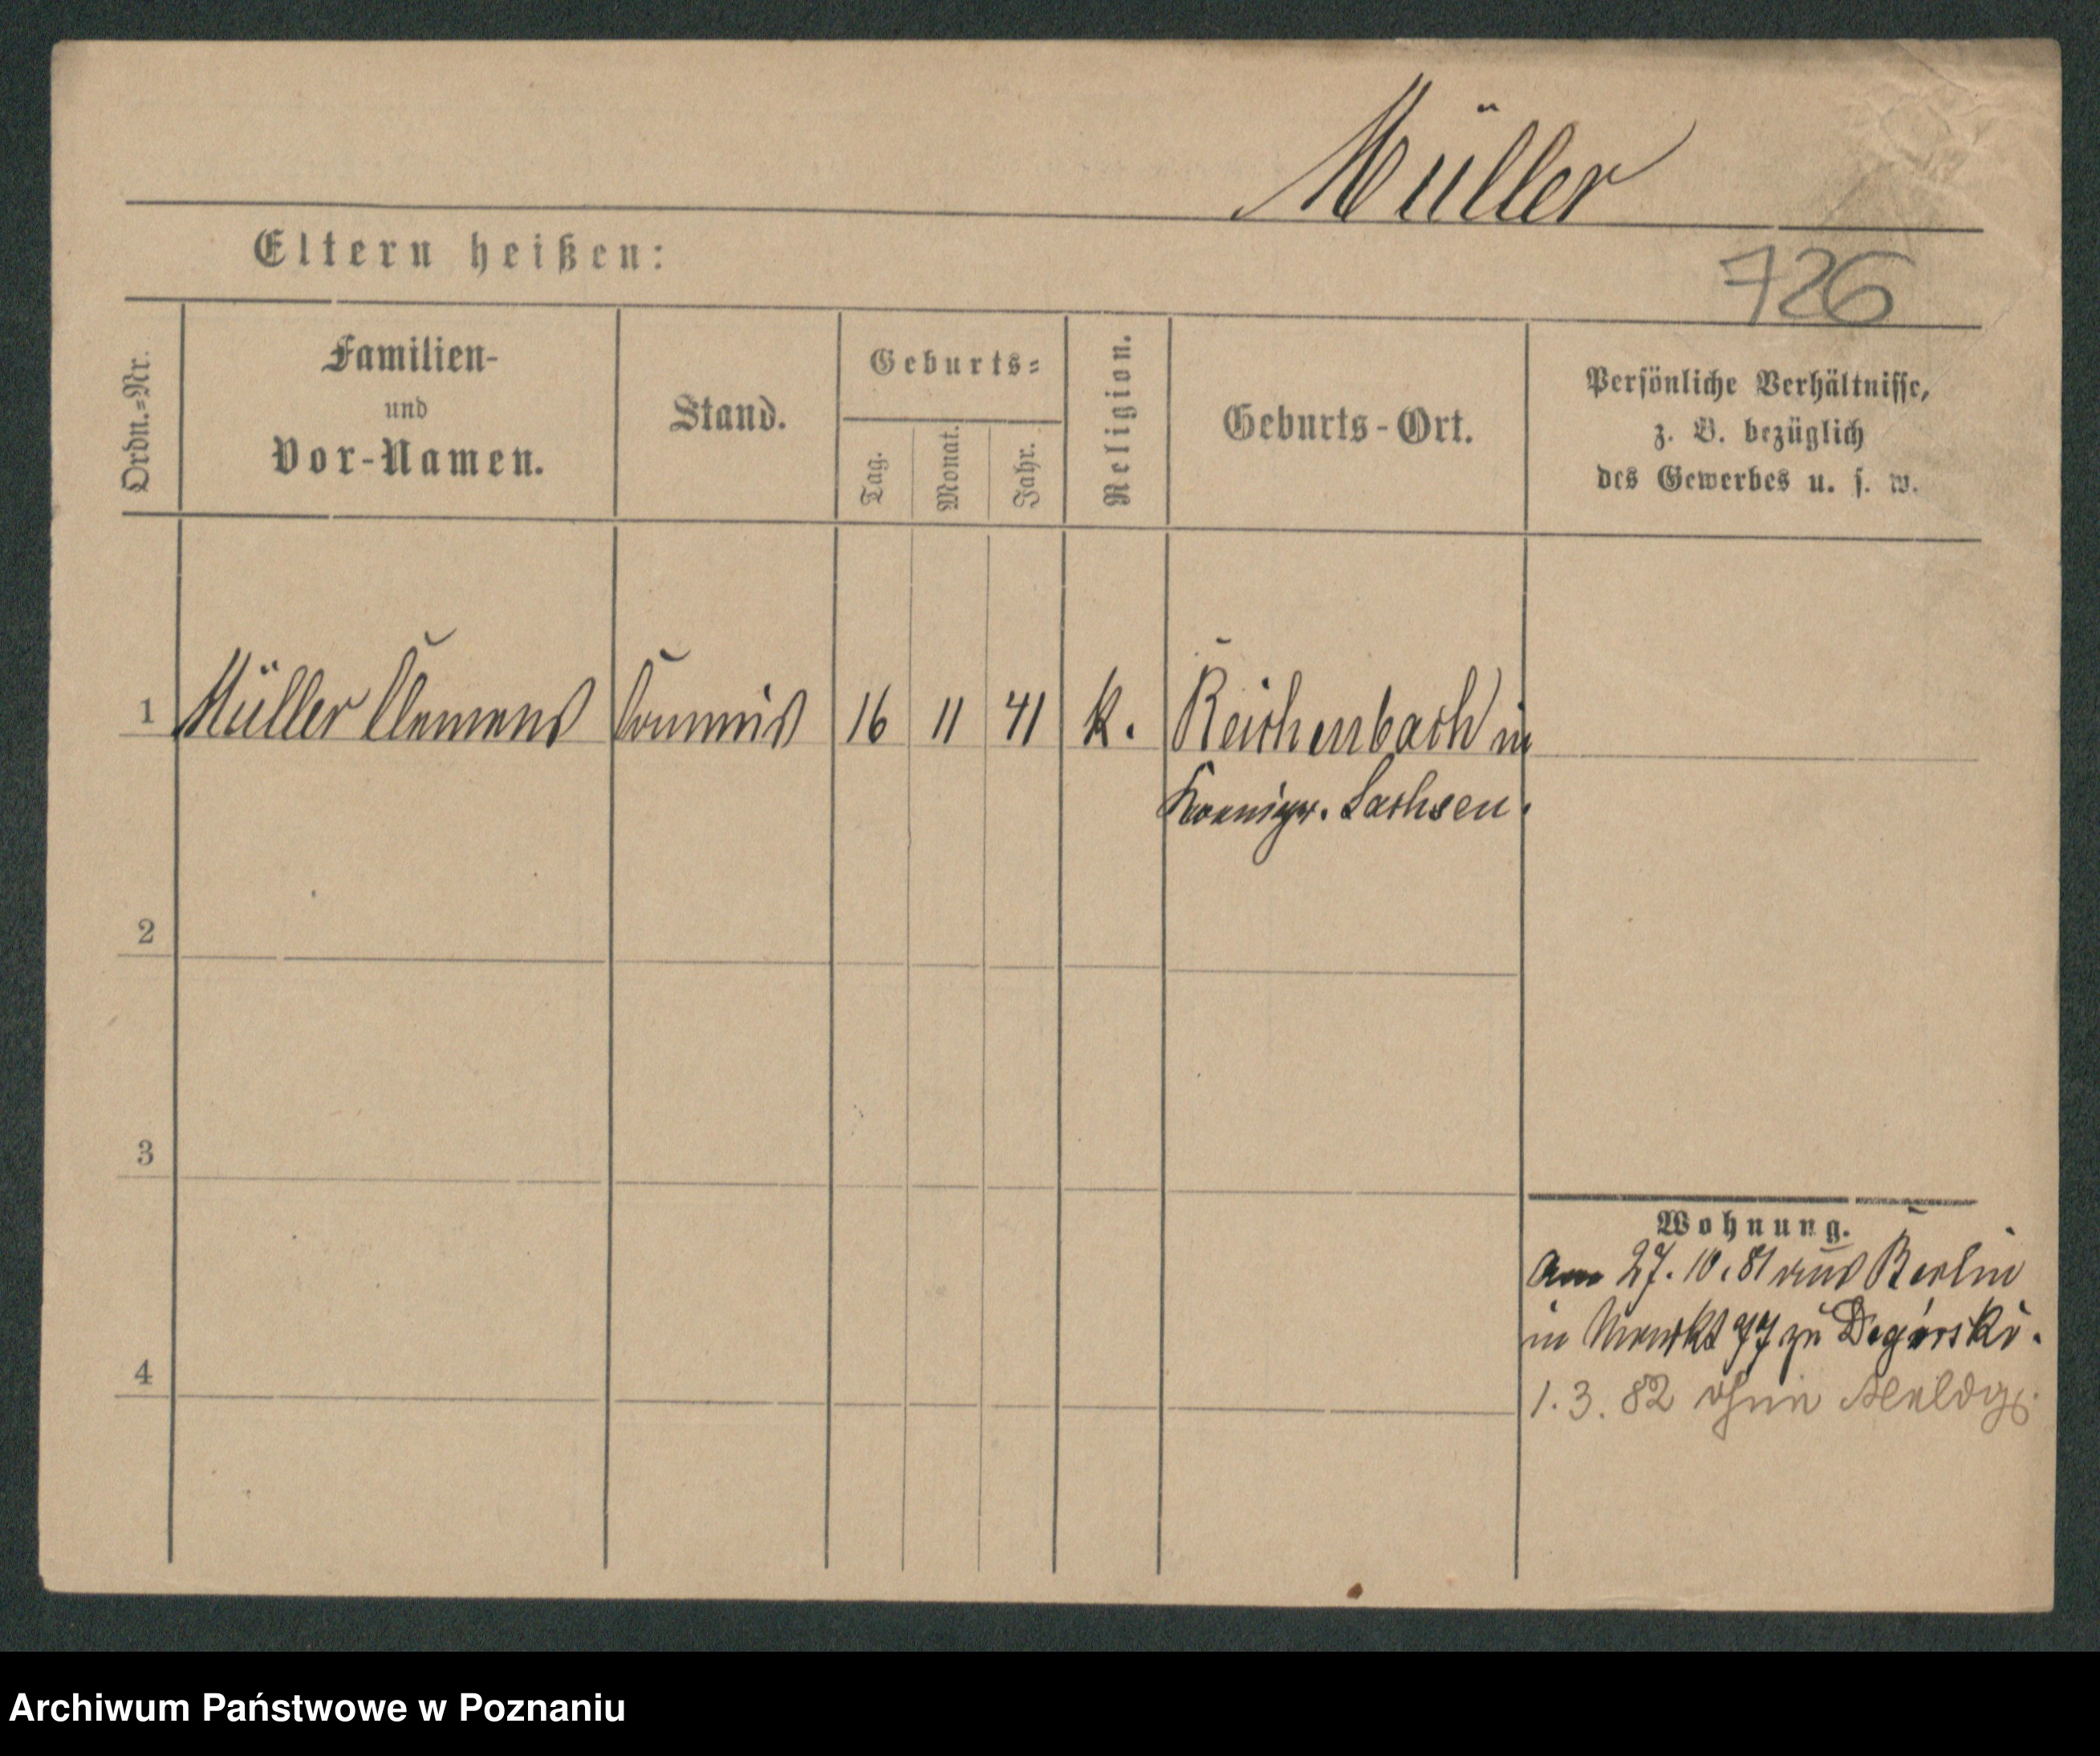 Müller
Eltern heißen:
726
Ordn.=Nr.
Familien-
und
Vor-Namen.
Stand.
Geburts=
Tag.
Monat.
Jahr.
Religion.
Geburts-Ort.
Persönliche Verhältnisse,
z. B. bezüglich
des Gewerbes u. s. w.
1 Müller Clemens Commis 16 11 41 k. Reichenbach in
Koenigr. Sachsen.
2
3
4
Wohnung.
Am 27.10.81 aus Berlin
in Markt 77 zu Degórski.
1.3.82 ohne Meldg.
Archiwum Państwowe w Poznaniu